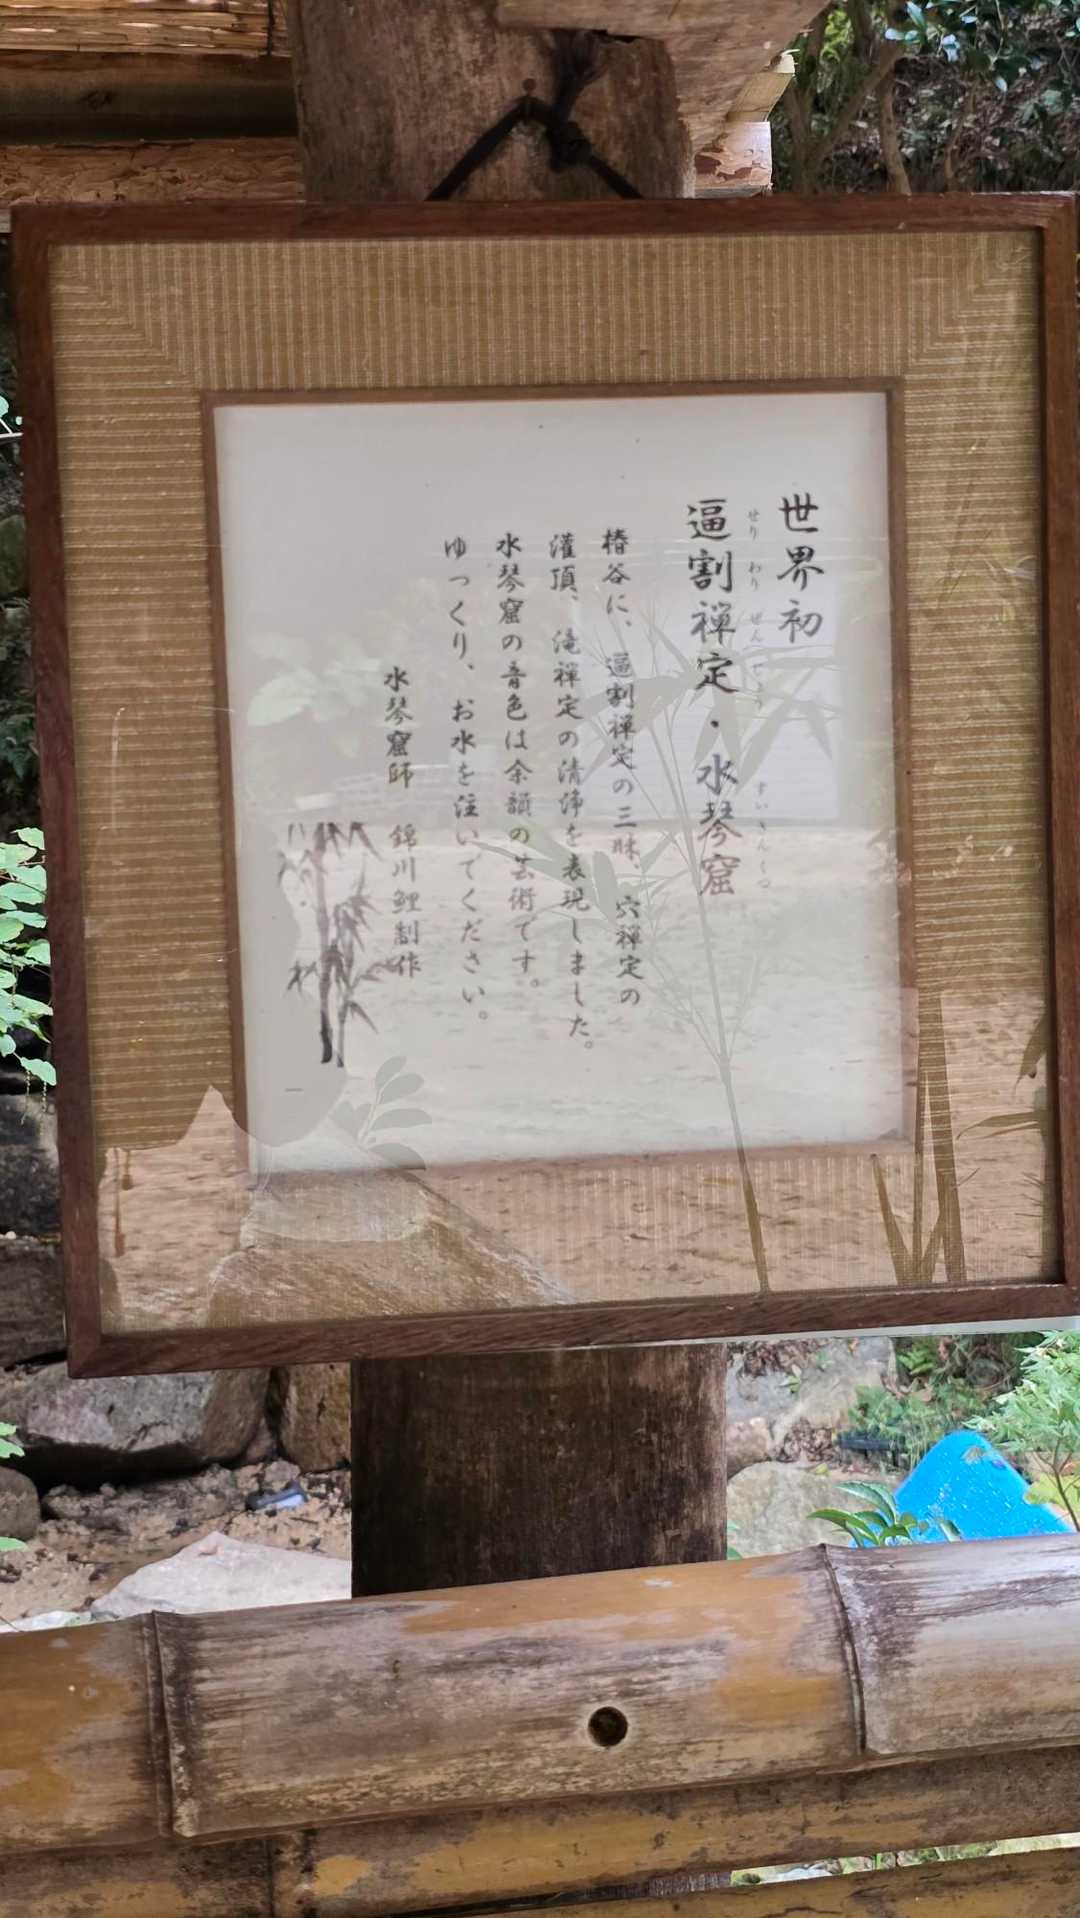 世界初
逼割禅定・水琴窟
せり わり ぜんじょう すいきんくつ
椿谷に、逼割禅定の三昧、穴禅定の
灌頂、滝禅定の清浄を表現しました。
水琴窟の音色は余韻の芸術です。
ゆっくり、お水を注いでください。
水琴窟師 錦川鯉制作